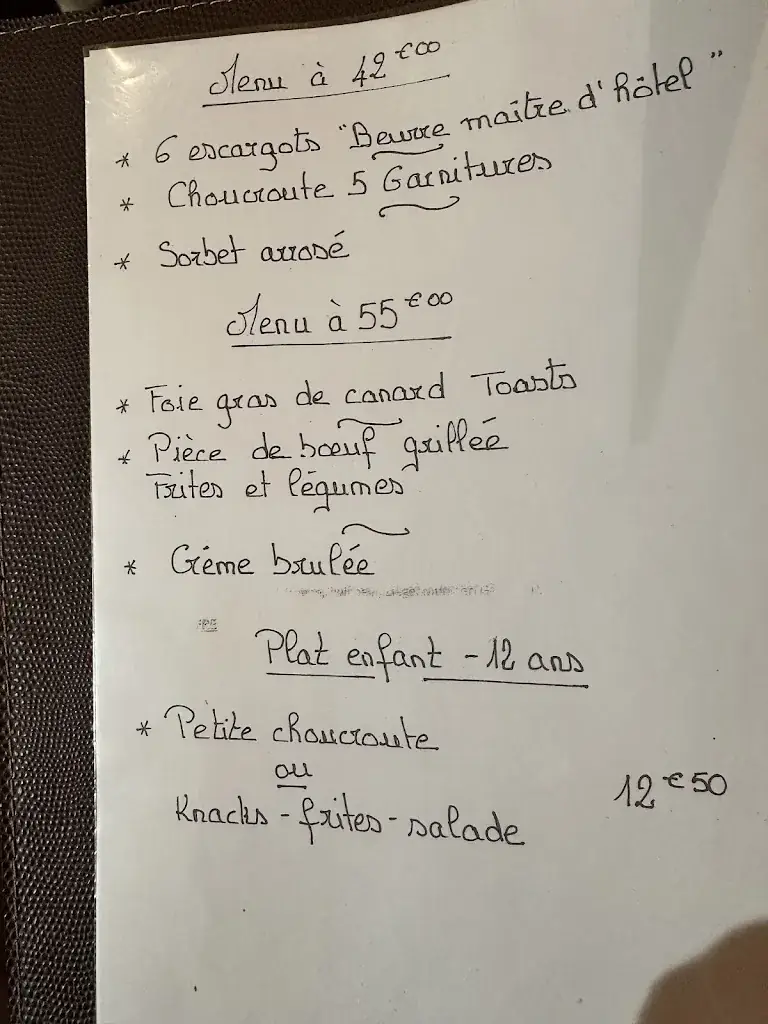 Menu à 42€00
* 6 escargots "Beurre maître d'hôtel"
* Choucroute 5 Garnitures
* Sorbet arrosé
Menu à 55€00
* Foie gras de canard Toasts
* Pièce de bœuf grillée
Frites et légumes
* Crème brulée
Plat enfant - 12 ans
* Petite choucroute
ou
Knacks - frites - salade
12€50